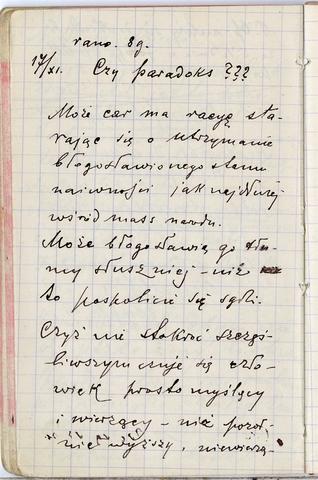 rano. 8 g.
17/XI. Czy paradoks ???
Może car ma racyę sta-
rając się o utrzymanie
błogosławionego stanu
naiwności jak najdłużej
wśród mass narodu.
Może błogosławią go tłu-
my słuszniej – niż
to pospolicie się sądzi.
Czyż nie stokroć szczęś-
liwszym czuje się czło-
wiek prosto myślący
i wierzący – niż pozor-
nie wyższy, niewierzą-